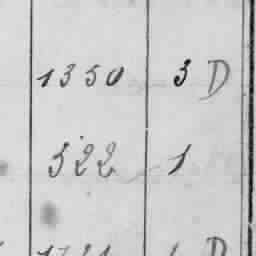 1350 3 D
322 1